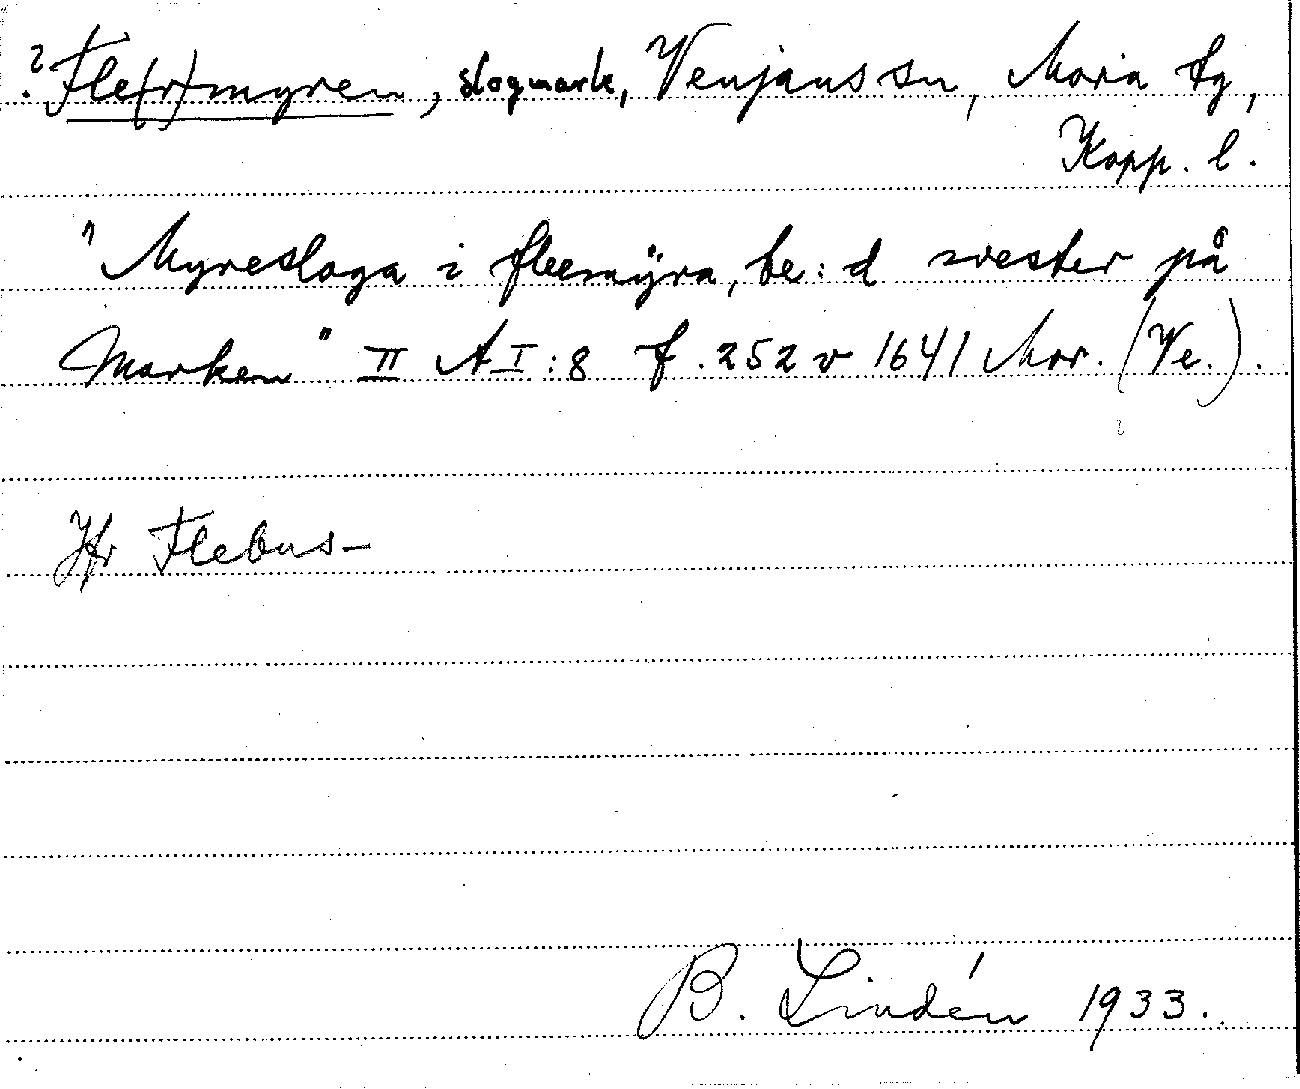 ? Fle(r)myren, slogmark, Venjans sn, Mora tg,
Kopp. l.
"Myresloga i fleemÿra, be:d wester på
Marken" II A I:8 f. 252 v 1641 Mor. (Ve.).
Jfr Flebus-
B. Lindén 1933.